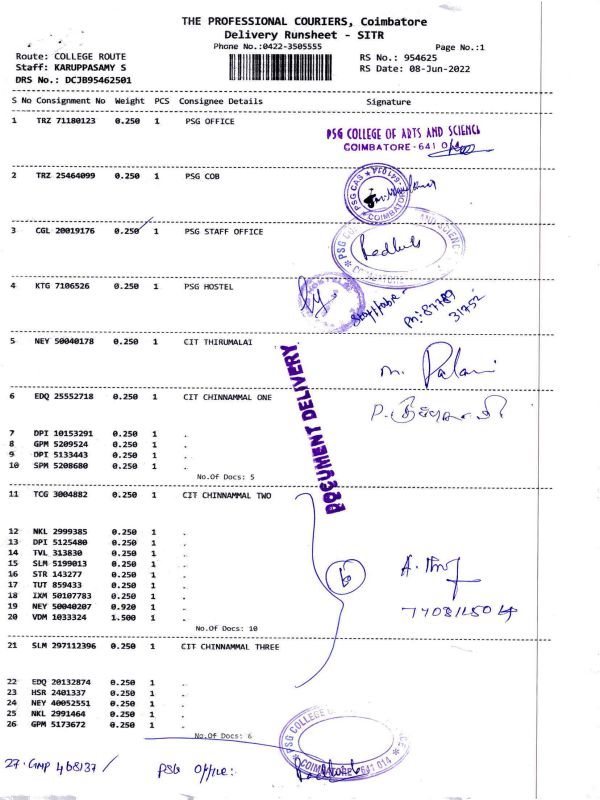 THE PROFESSIONAL COURIERS, Coimbatore
Delivery Runsheet - SITR
Phone No.:0422-3505555 Page No.:1
Route: COLLEGE ROUTE RS No.: 954625
Staff: KARUPPASAMY S RS Date: 08-Jun-2022
DRS No.: DCJB95462501
S No Consignment No Weight PCS Consignee Details Signature
1 TRZ 71180123 0.250 1 PSG OFFICE
PSG COLLEGE OF ARTS AND SCIENCE
COIMBATORE - 641 014
2 TRZ 25464099 0.250 1 PSG COB
PSG CAS
COIMBATORE
3 CGL 20019176 0.250 1 PSG STAFF OFFICE
4 KTG 7106526 0.250 1 PSG HOSTEL
ph: 87789
31752
5 NEY 50040178 0.250 1 CIT THIRUMALAI
M. Palani
DOCUMENT DELIVERY
6 EDQ 25552718 0.250 1 CIT CHINNAMMAL ONE
7 DPI 10153291 0.250 1 .
8 GPM 5209524 0.250 1 .
9 DPI 5133443 0.250 1 .
10 SPM 5208680 0.250 1 .
No.Of Docs: 5
11 TCG 3004882 0.250 1 CIT CHINNAMMAL TWO
12 NKL 2999385 0.250 1 .
13 DPI 5125480 0.250 1 .
14 TVL 313830 0.250 1 .
15 SLM 5199013 0.250 1 .
16 STR 143277 0.250 1 .
17 TUT 859433 0.250 1 .
18 IXM 50107783 0.250 1 .
19 NEY 50040207 0.920 1 .
20 VDM 1033324 1.500 1 .
No.Of Docs: 10
6
21 SLM 297112396 0.250 1 CIT CHINNAMMAL THREE
22 EDQ 20132874 0.250 1 .
23 HSR 2401337 0.250 1 .
24 NEY 40052551 0.250 1 .
25 NKL 2991464 0.250 1 .
26 GPM 5173672 0.250 1 .
No.Of Docs: 6
27. GMP 468137 / PSG Office: